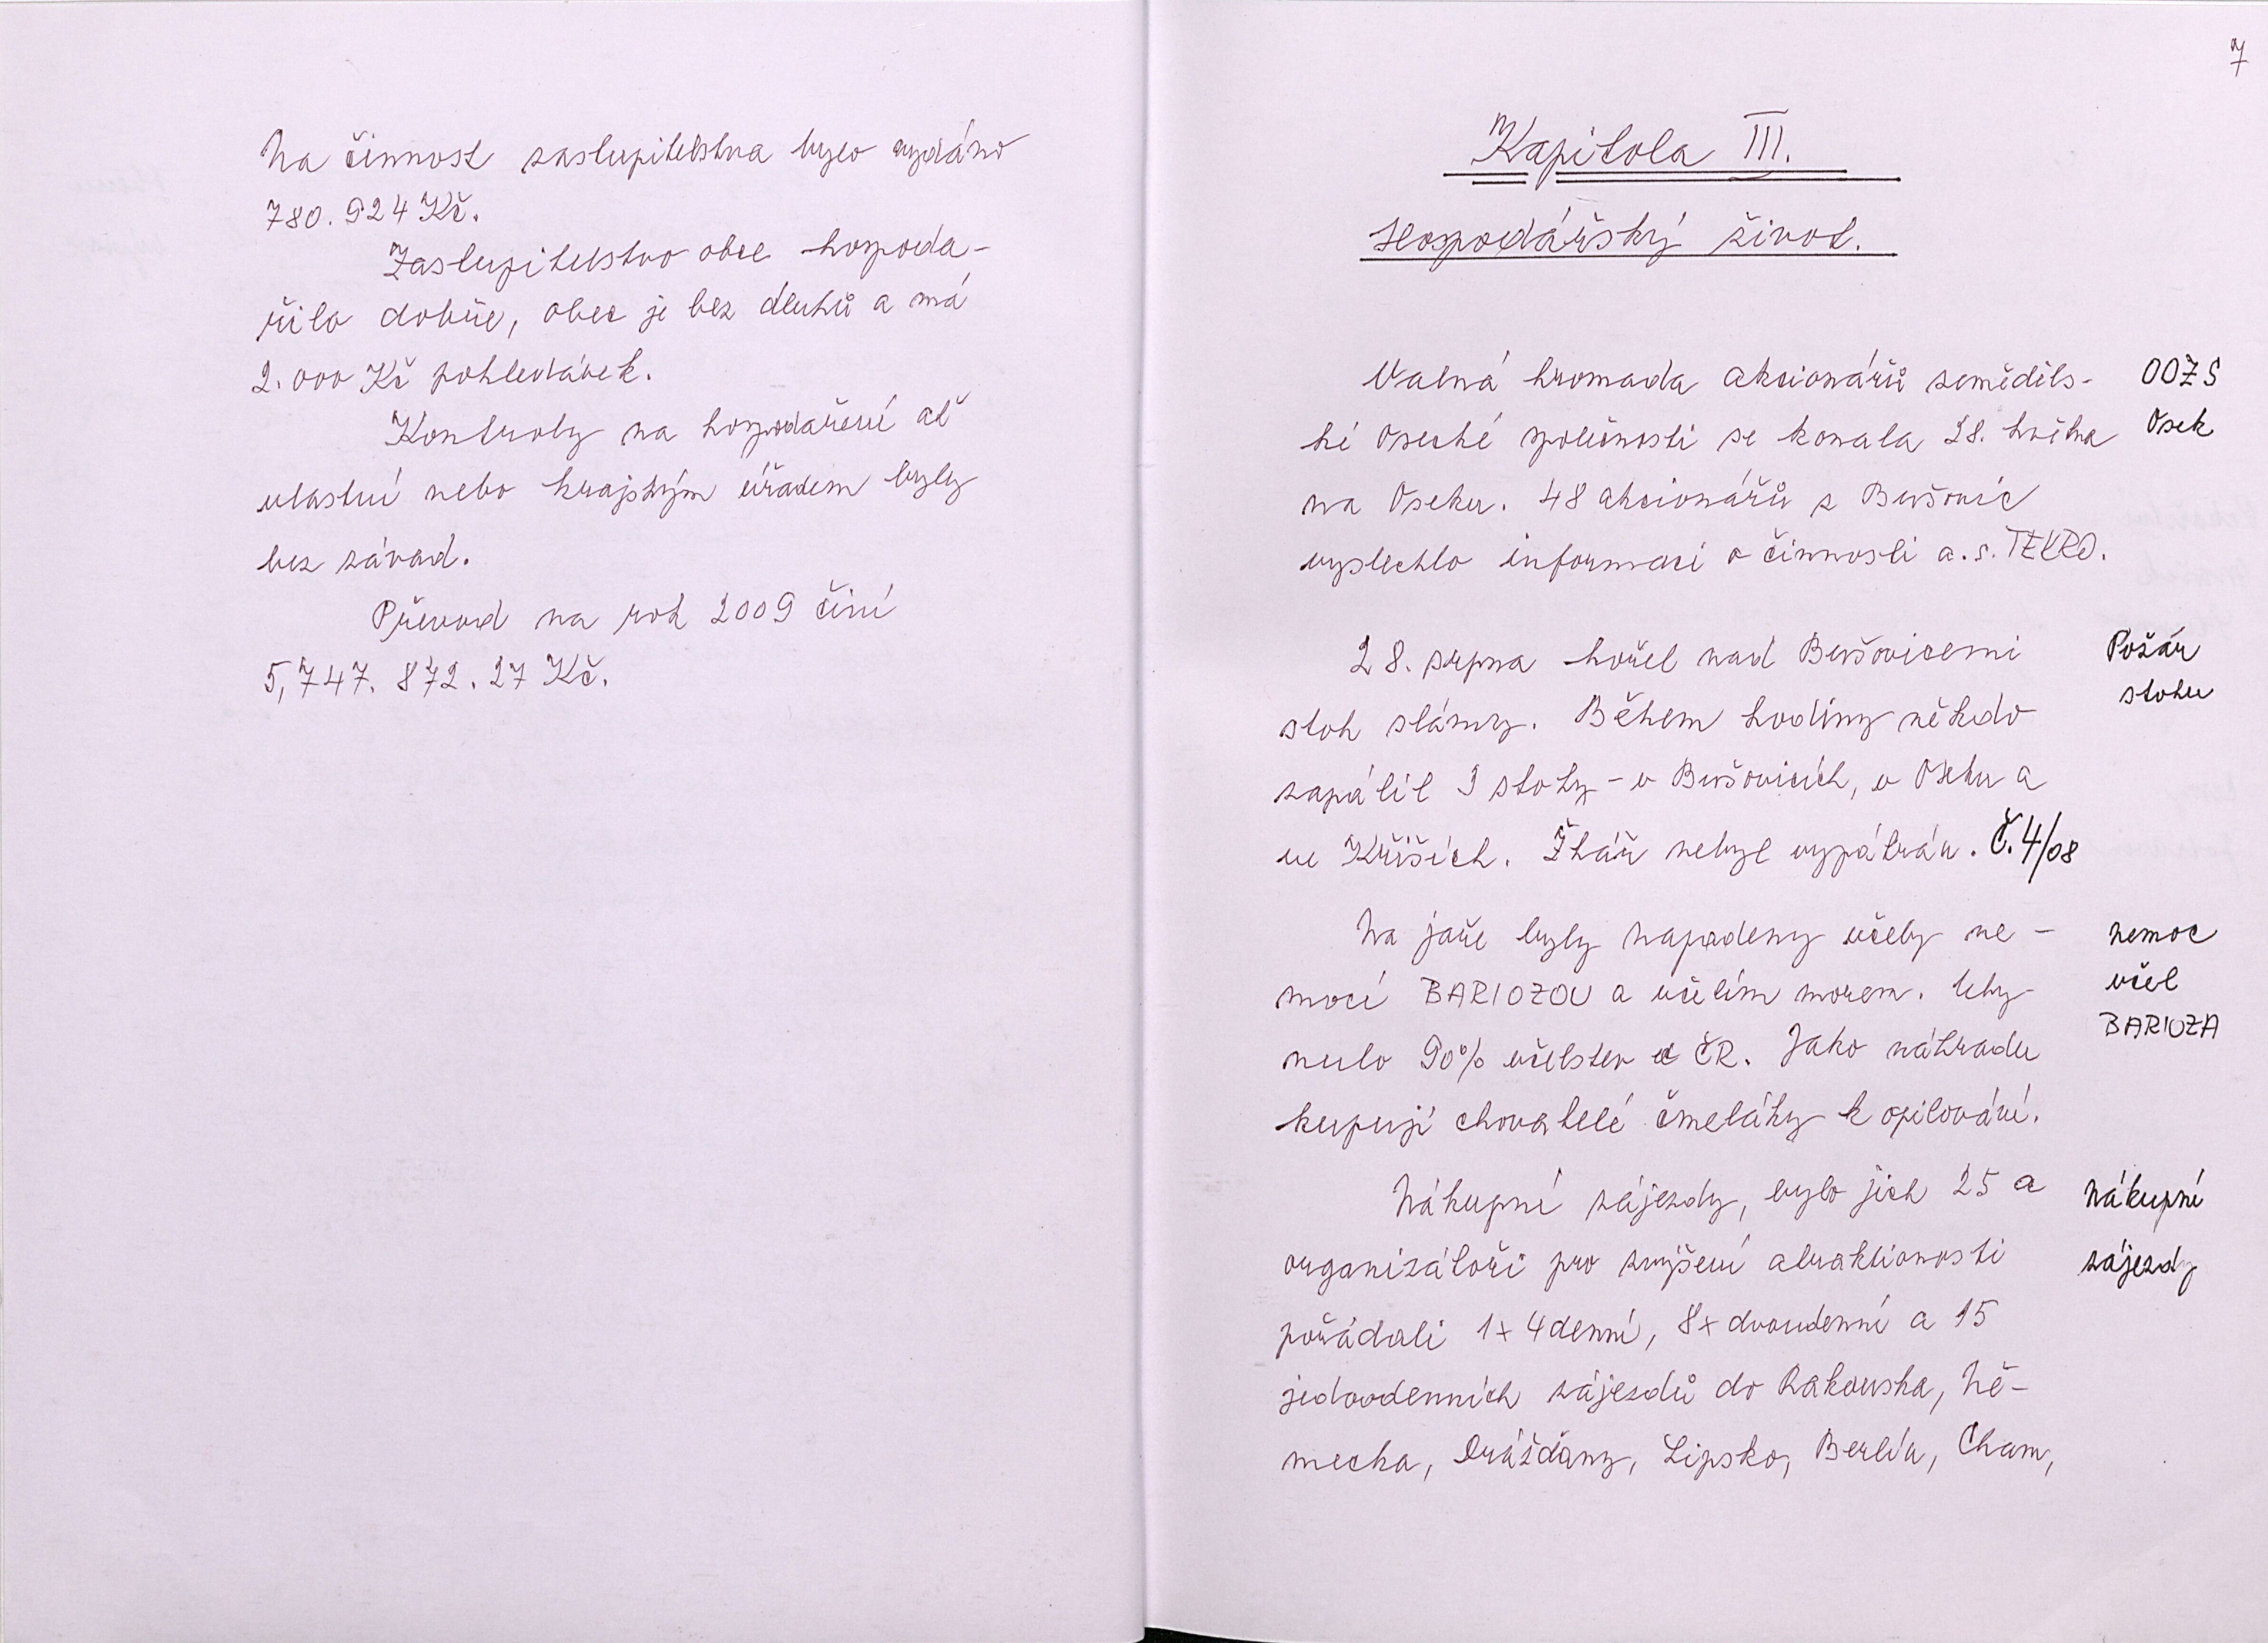 Na činnost zastupitelstva bylo vydáno
780.924 Kč.
Zastupitelstvo obce hospoda-
řilo dobře, obec je bez dluhů a má
2.000 Kč pohledávek.
Kontroly na hospodaření ať
vlastní nebo krajským úřadem byly
bez závad.
Převod na rok 2009 činí
5,747.872.27 Kč.
7
Kapitola III.
Hospodářský život.
Valná hromada akcionářů zeměděls-
ké Osecké společnosti se konala 28. května
na Oseku. 48 akcionářů z Bušovic
vyslechlo informaci o činnosti a.s. TEKRO.
OOZS
Osek
28. srpna hořel nad Bušovicemi
stoh slámy. Během hodiny někdo
zapálil 3 stohy - v Bušovicích, v Oseku a
ve Kříších. Žhář nebyl vypátrán. Č.4/08
Požár
stohu
Na jaře byly napadeny včely ne-
mocí BARIOZOU a včelím morem. Uhy-
nulo 90% včelstev v ČR. Jako náhradu
kupují chovatelé čmeláky k opilování.
nemoc
včel
BARIOZA
Nákupní zájezdy, bylo jich 25 a
organizátoři pro zvýšení atraktivnosti
pořádali 1x 4denní, 8x dvoudenní a 15
jednodenních zájezdů do Rakouska, Ně-
mecka, Drážďany, Lipsko, Berlín, Cham,
Nákupní
zájezdy